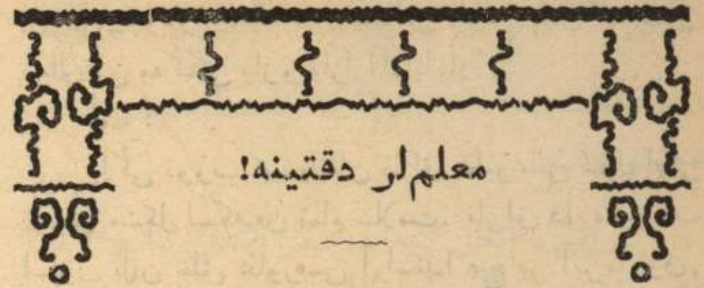 معلم‌لر دقتینه!